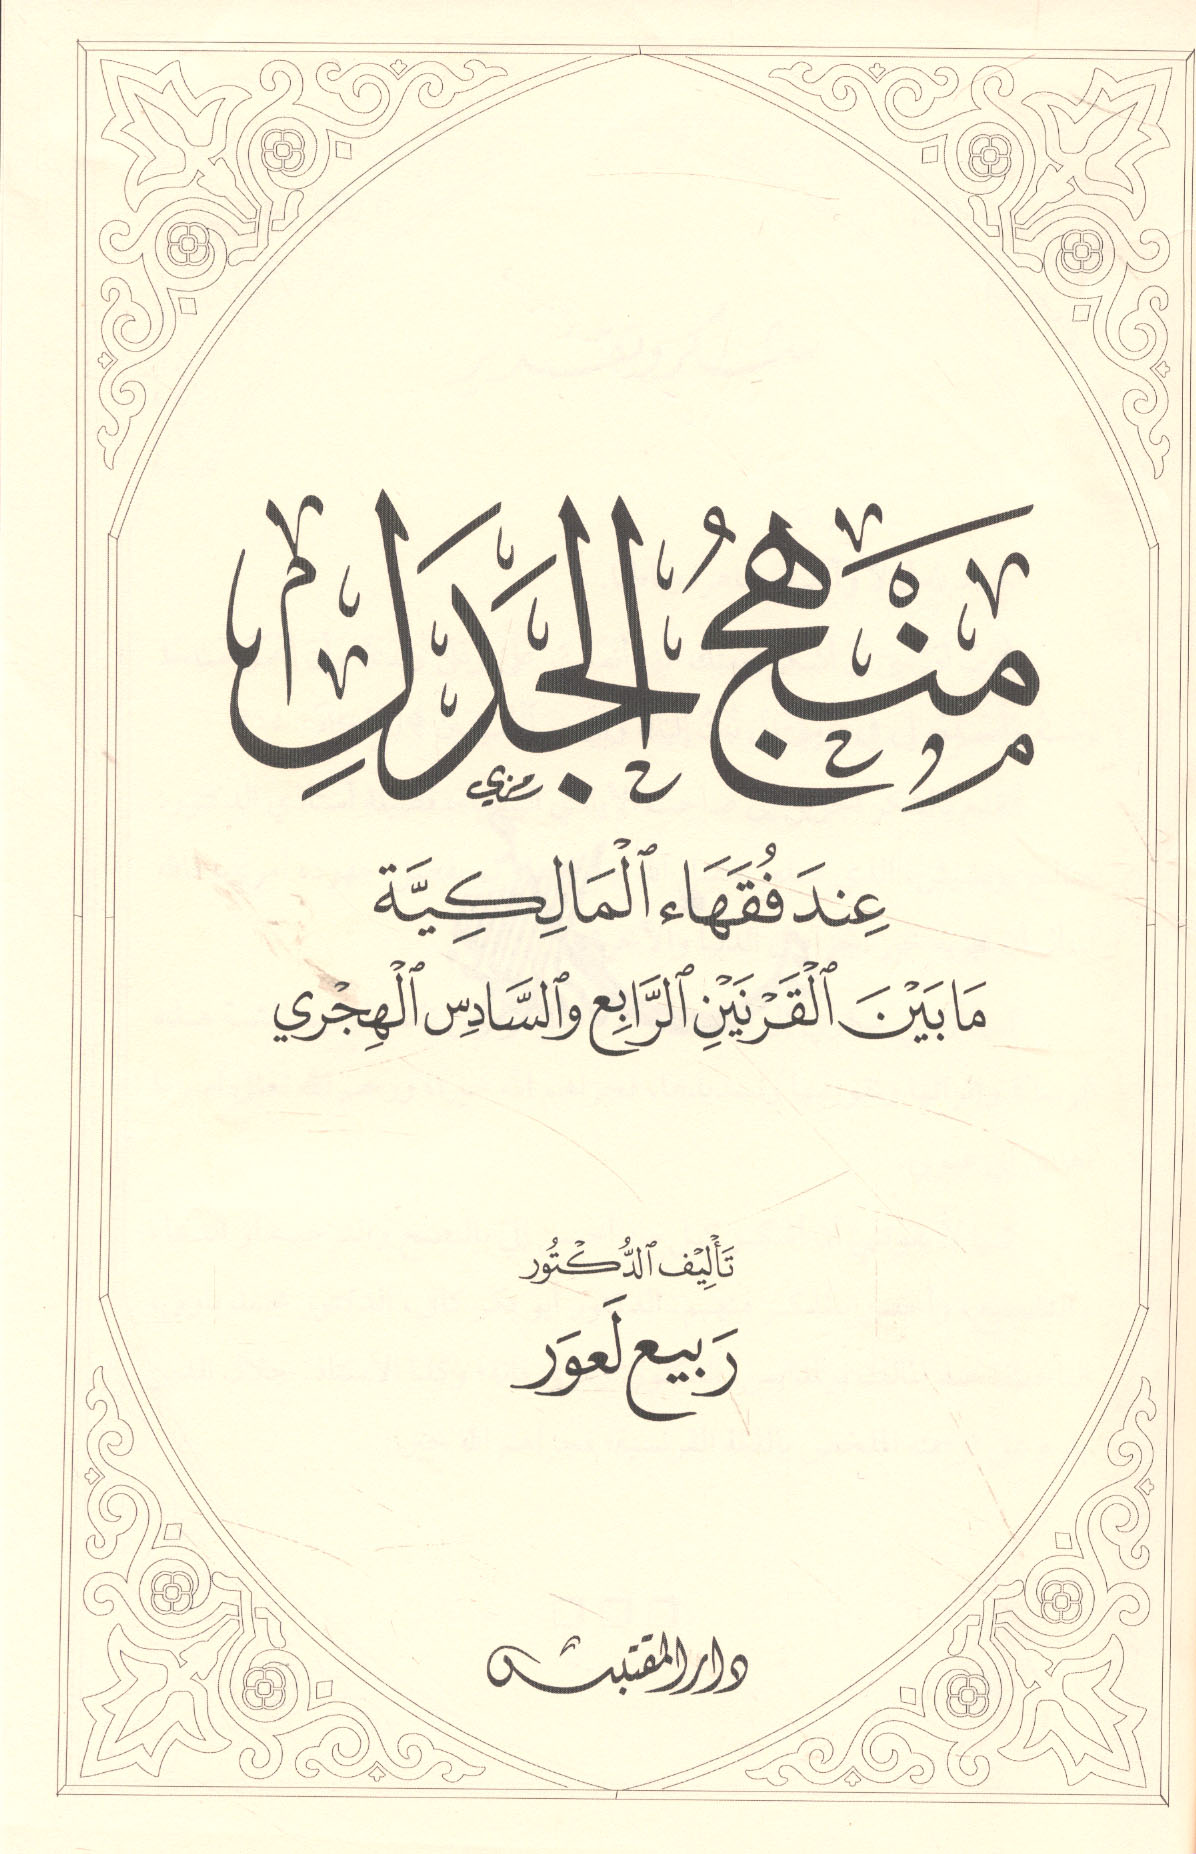 مَنْهَجُ الجَدَلِ
رمزي
عِندَ فُقَهَاء ٱلْمَالِكِيَّة
مَا بَيْنَ ٱلْقَرْنَيْنِ ٱلرَّابِع وٱلسَّادِس ٱلْهِجْرِي
تَأْلِيْف ٱلدُّكْتُور
رَبيع لَعوَر
دار المقتبس